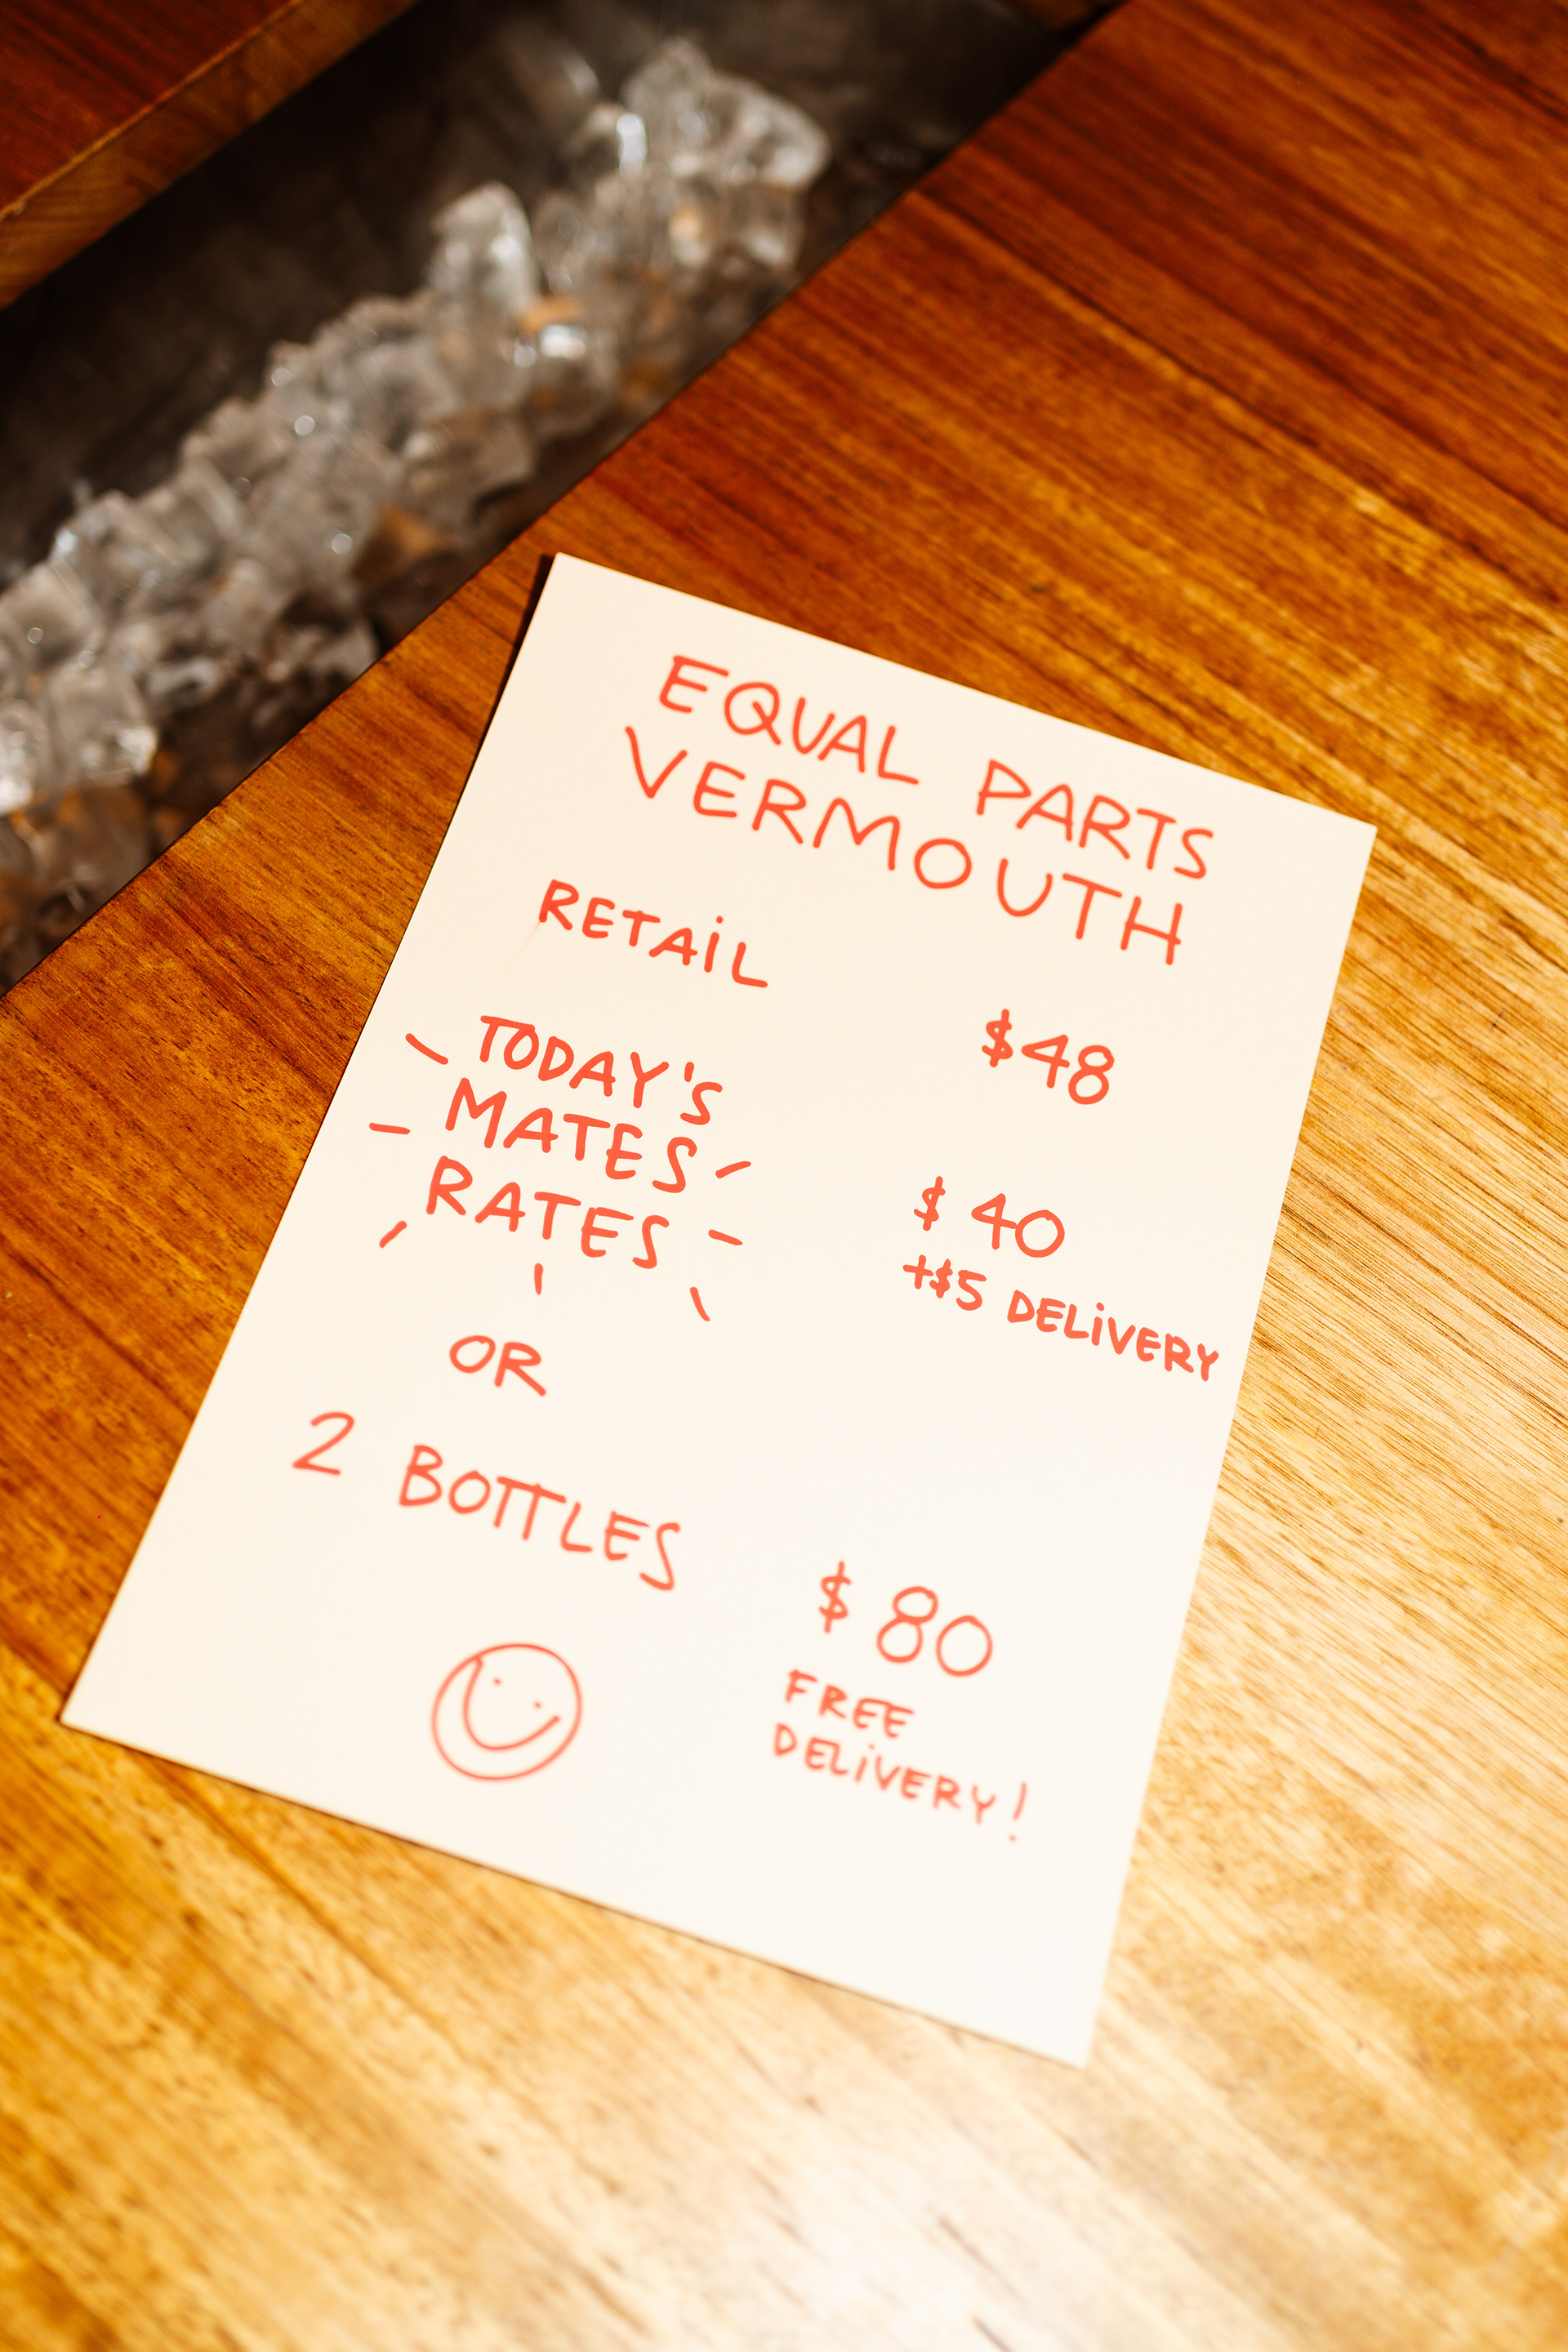 EQUAL PARTS
VERMOUTH
RETAiL
$48
TODAY'S
MATES
RATES
$40
+$5 DELiVERY
OR
2 BOTTLES
$80
FREE
DELiVERY!